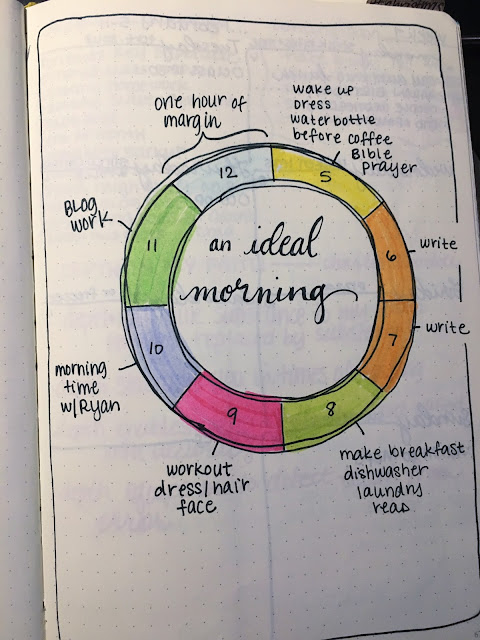 one hour of
margin
wake up
dress
water bottle
before coffee
Bible
Prayer
12
5
Blog
work
11
6
write
an ideal
morning
7
write
10
morning
time
w/Ryan
9
8
workout
dress/hair
face
make breakfast
dishwasher
laundry
read